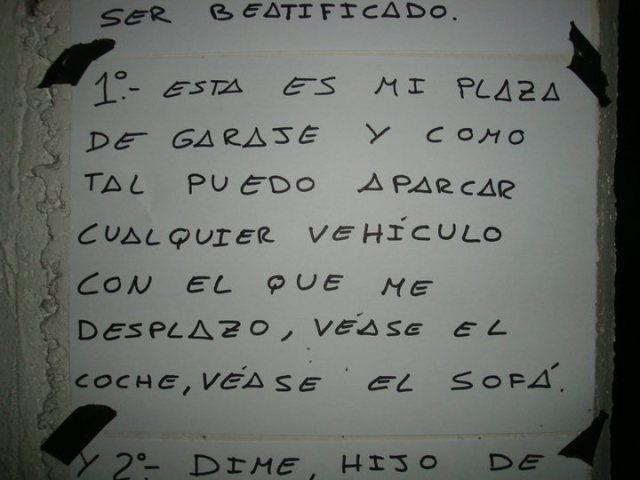 SER BEATIFICADO.
1º.- ESTA ES MI PLAZA
DE GARAJE Y COMO
TAL PUEDO APARCAR
CUALQUIER VEHÍCULO
CON EL QUE ME
DESPLAZO, VÉASE EL
COCHE, VÉASE EL SOFÁ.
Y 2º.- DIME, HIJO DE